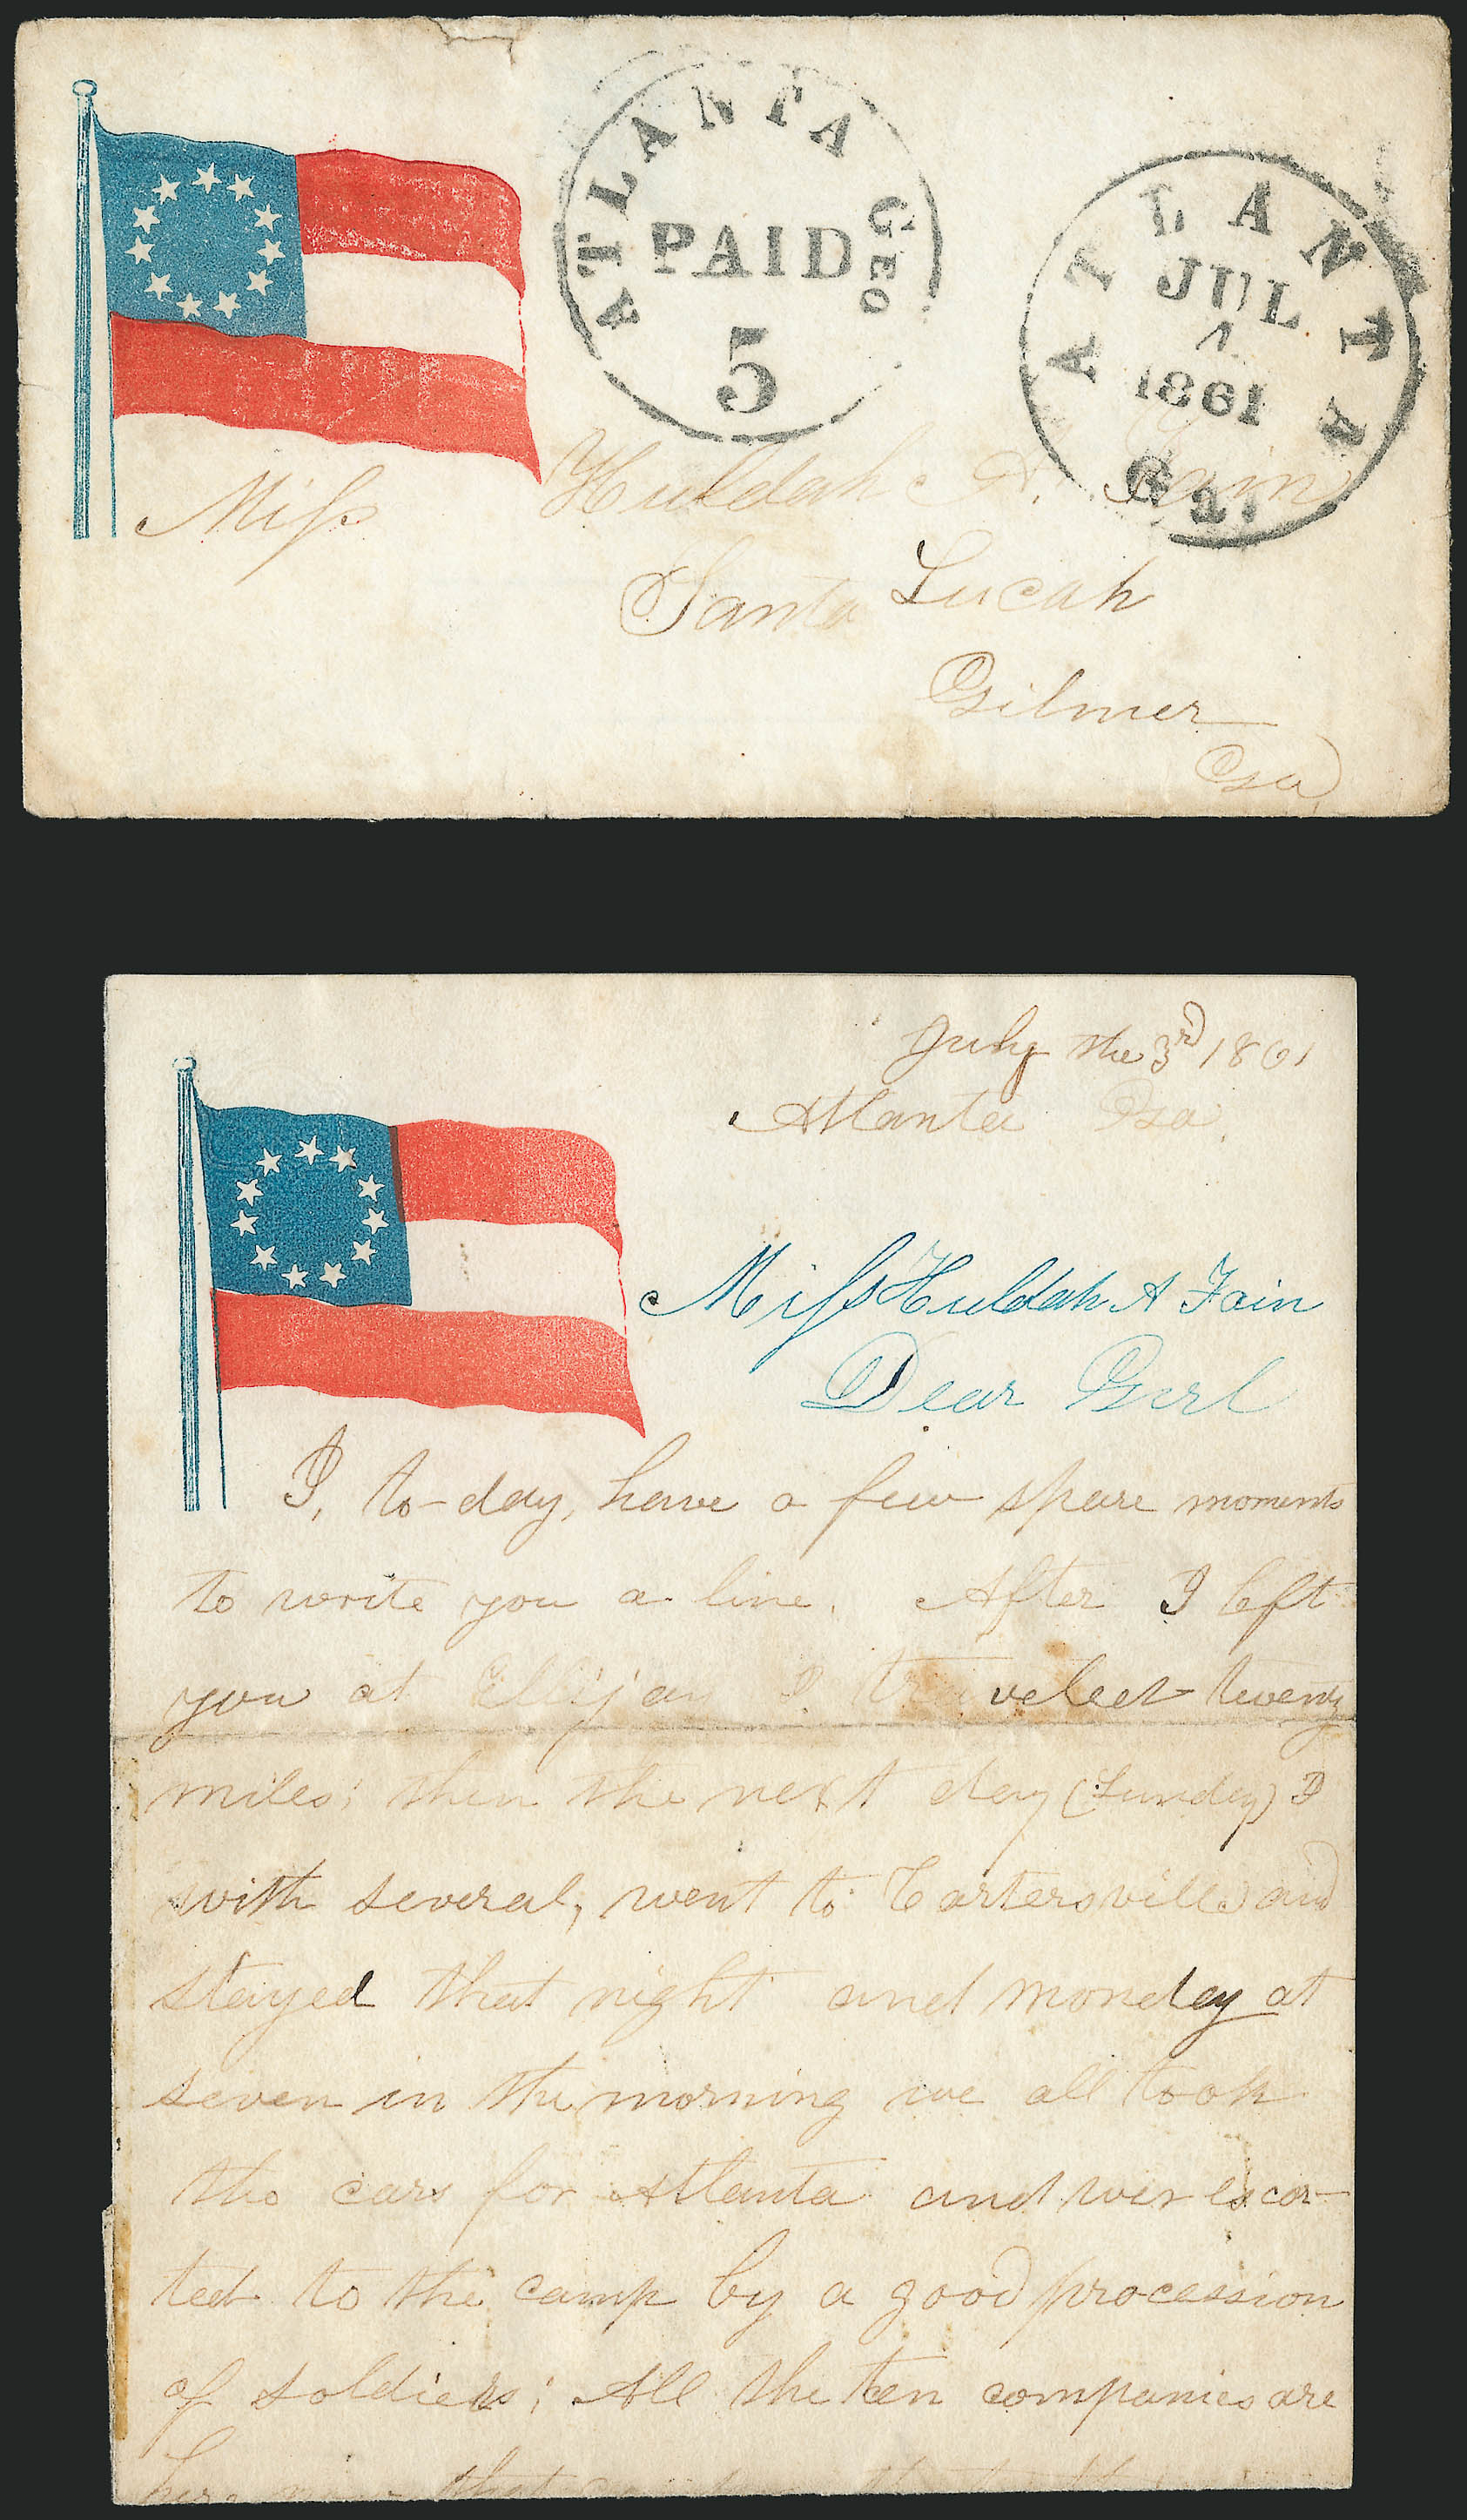 ATLANTA GEO
PAID
5
ATLANTA
JUL
1861
Ga.
Miss Huldah A. Fain
Santa Lucah
Gilmer
Ga,
July the 3rd 1861
Atlanta Ga,
Miss Huldah A Fain
Dear Girl
I, to-day, have a few spare moments
to write you a line. After I left
you at Ellijay I traveled twenty
miles; then the next day (Sunday) I
with several, went to Cartersville and
stayed that night and monday at
seven in the morning we all took
the cars for Atlanta and wer escor-
ted to the camp by a good procession
of soldiers; All the ten companies are